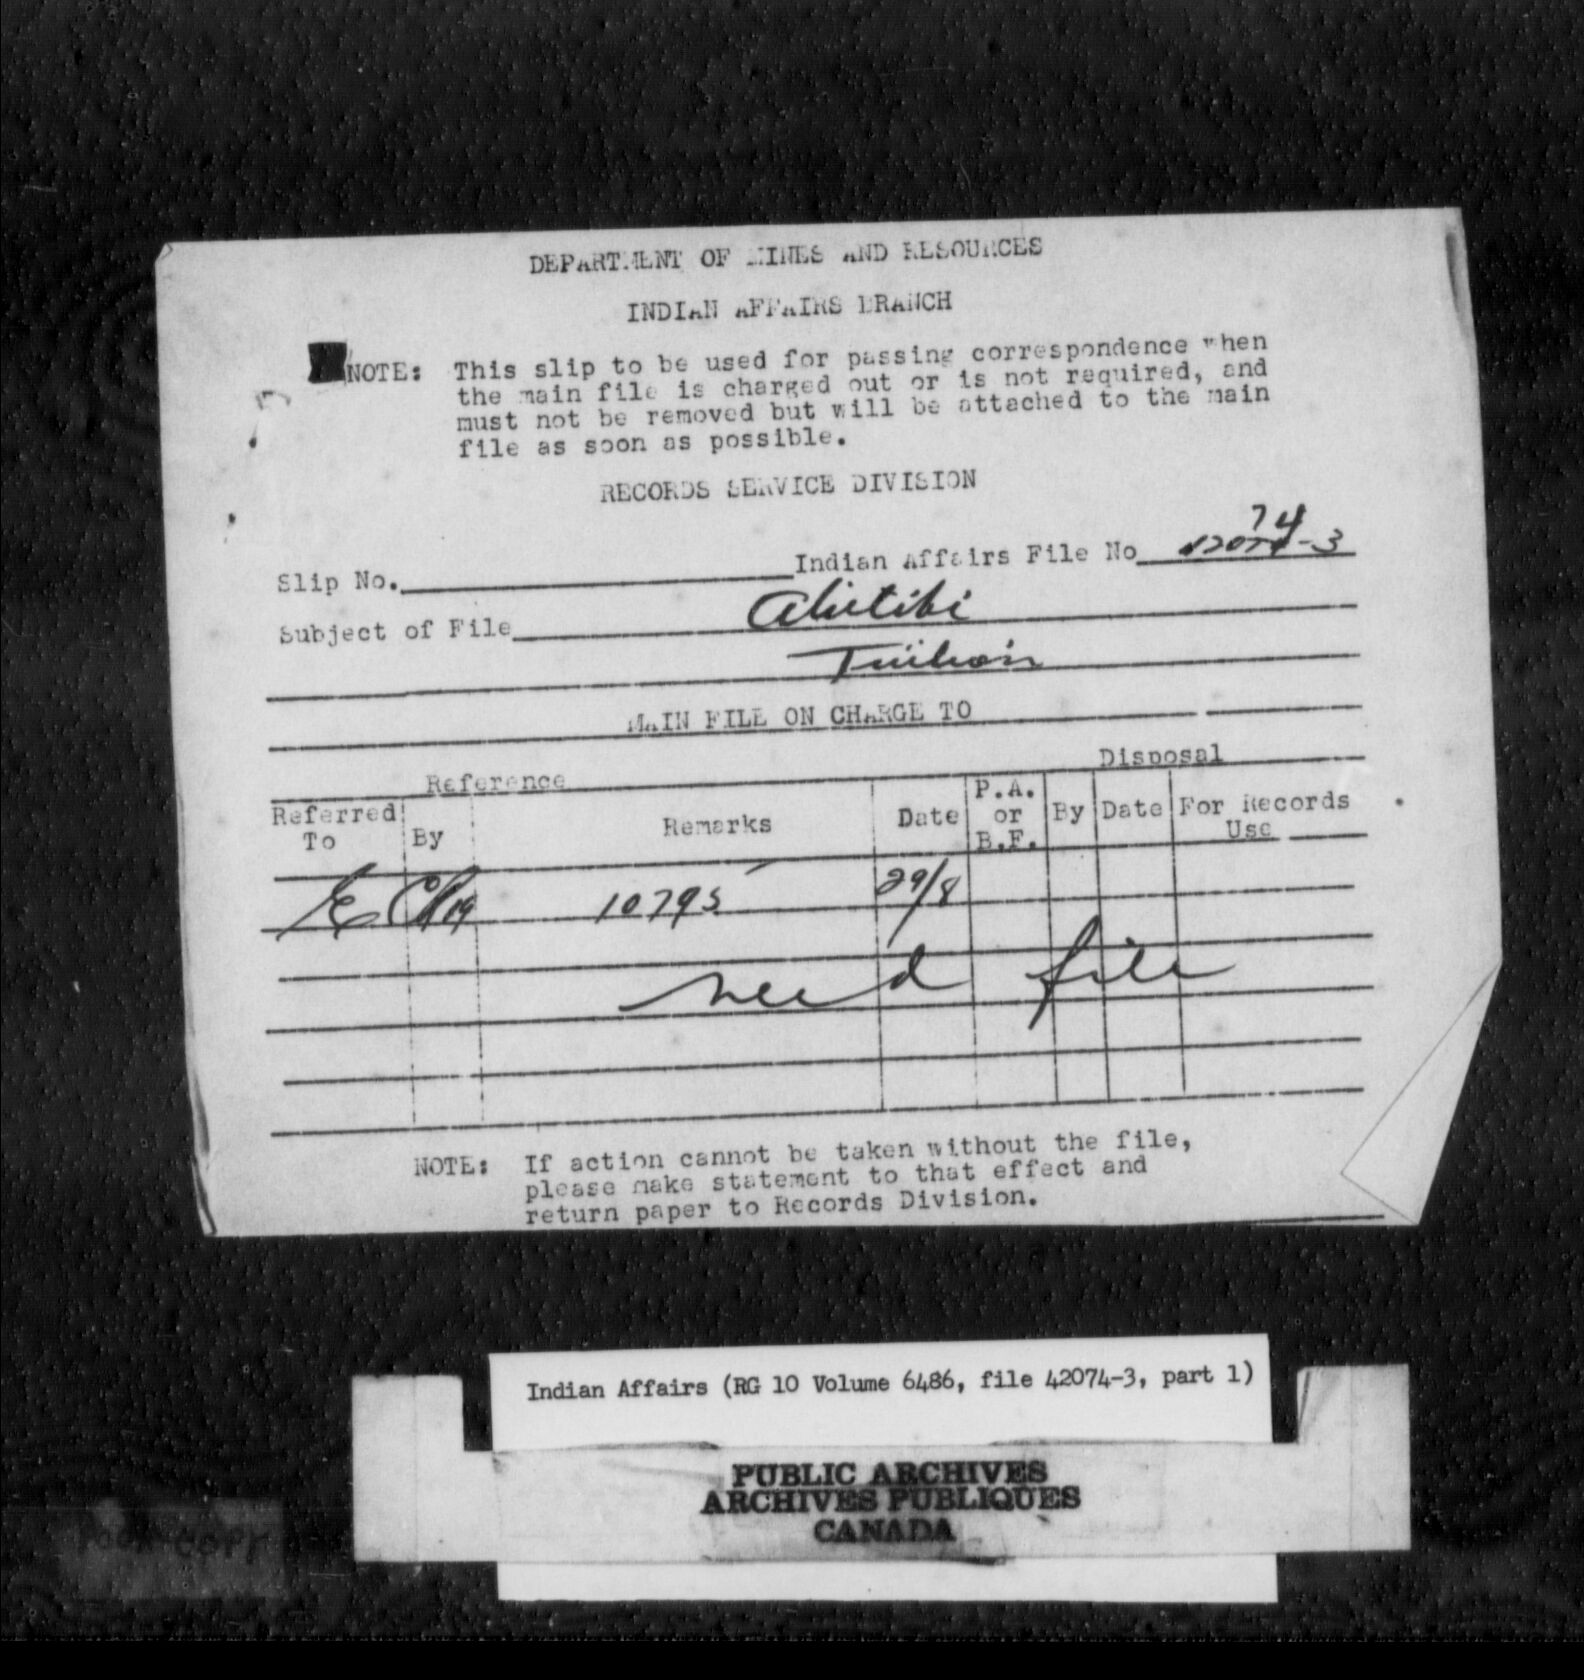 DEPARTMENT OF MINES AND RESOURCES
INDIAN AFFAIRS BRANCH
NOTE: This slip to be used for passing correspondence when
the main file is charged out or is not required, and
must not be removed but will be attached to the main
file as soon as possible.
RECORDS SERVICE DIVISION
74
Slip No. Indian Affairs File No 42074-3
Subject of File Abitibi
Tuition
MAIN FILE ON CHARGE TO
Reference Disposal
Referred To By Remarks Date P.A. or B.F. By Date For Records Use
10795 29/8
need file
NOTE: If action cannot be taken without the file,
please make statement to that effect and
return paper to Records Division.
Indian Affairs (RG 10 Volume 6486, file 42074-3, part 1)
PUBLIC ARCHIVES
ARCHIVES PUBLIQUES
CANADA
POOR COPY